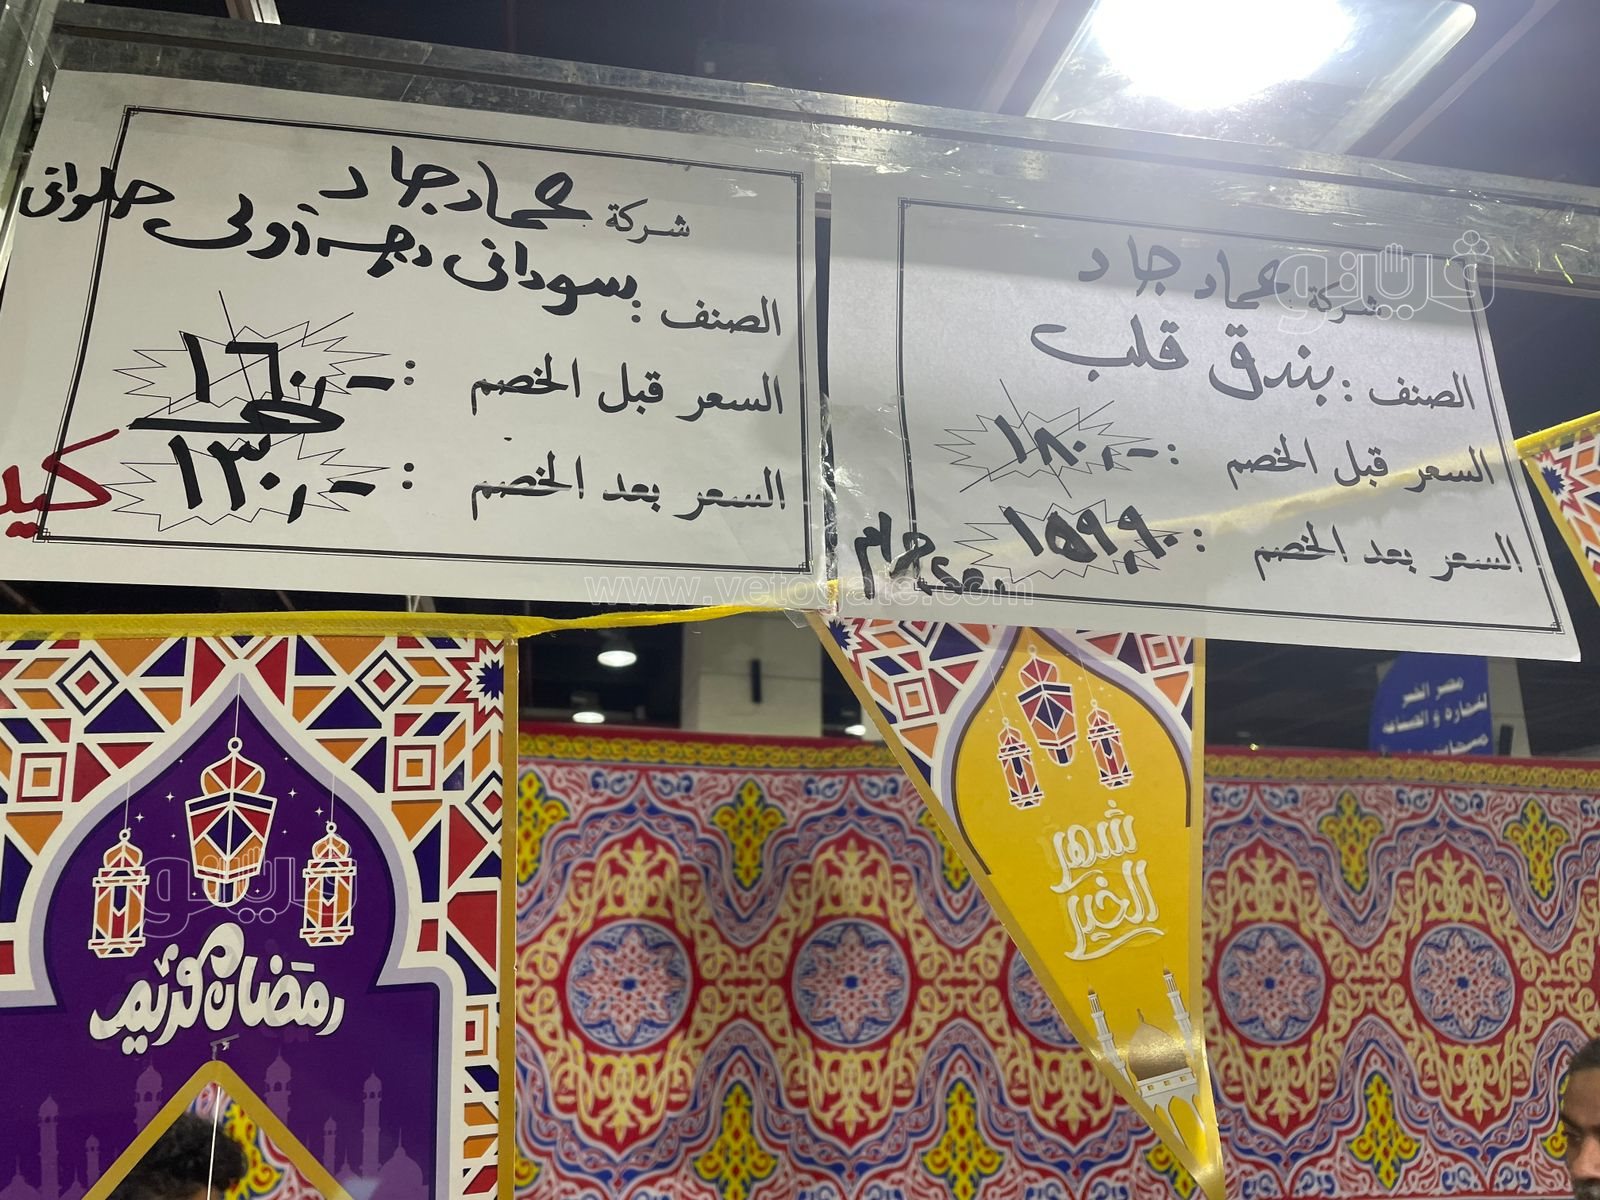 شركة حماد جاد
الصنف : بندق قلب
السعر قبل الخصم : ١٨٠,-
السعر بعد الخصم : ١٥٩,٩٠
جرام
شركة حماد جاد
الصنف : سوداني درجة أولى حلواني
السعر قبل الخصم : ١٦٠,-
السعر بعد الخصم : ١٣٠,-
فيتو
www.vetogate.com
مصر الخير
للتجارة و الصناعة
شهر
الخير
رمضان كريم